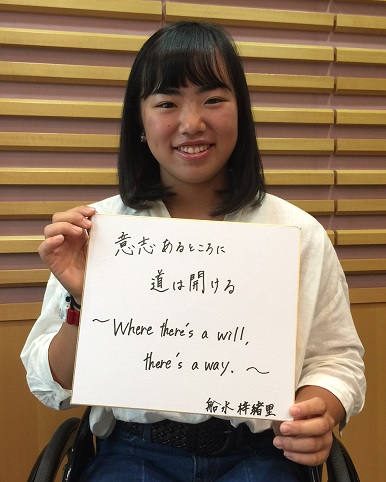 意志あるところに
道は開ける
～Where there's a will,
there's a way.～
船水梓緒里